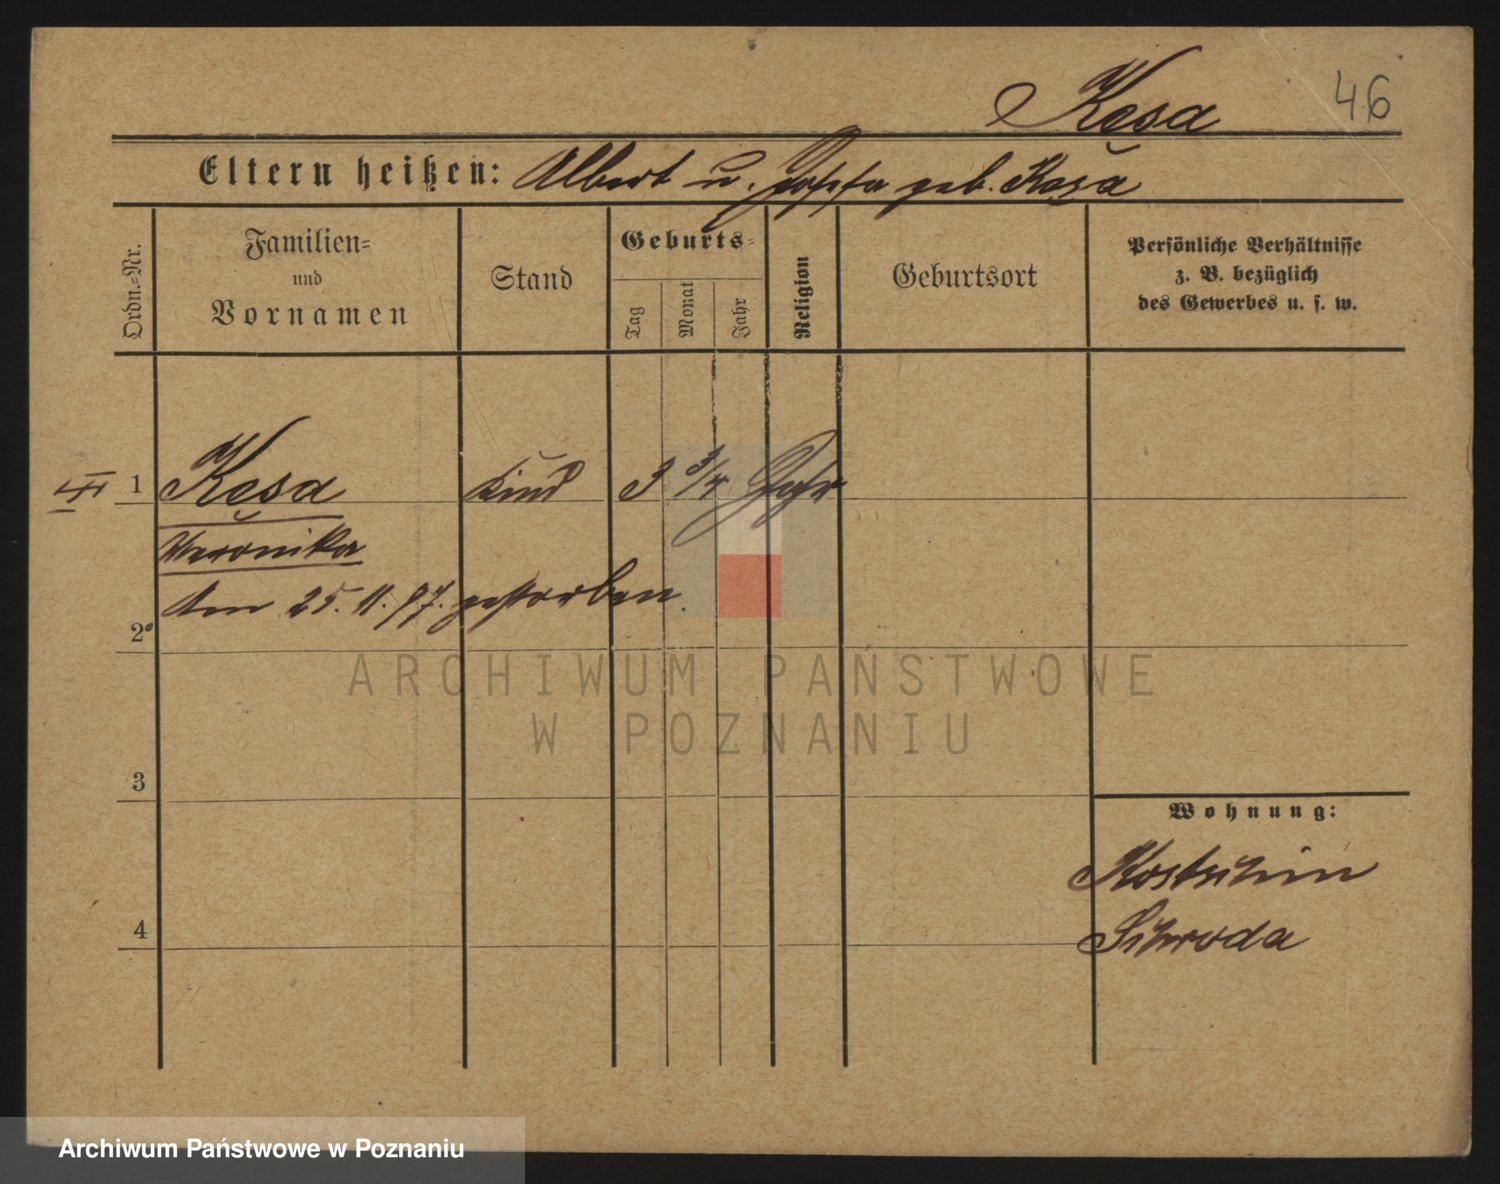 Kesa
46
Eltern heißen: Albert u. Josefa geb. Kasa
Ordn.=Nr.
Familien=
und
Vornamen
Stand
Geburts=
Tag
Monat
Jahr
Religion
Geburtsort
Persönliche Verhältnisse
z. B. bezüglich
des Gewerbes u. s. w.
1 Kesa Kind 3 3/4 Jahr
Veronika
Am 25. 11. 97. gestorben.
2
ARCHIWUM PAŃSTWOWE
W POZNANIU
3
Wohnung:
Kostschin
4
Schroda
Archiwum Państwowe w Poznaniu